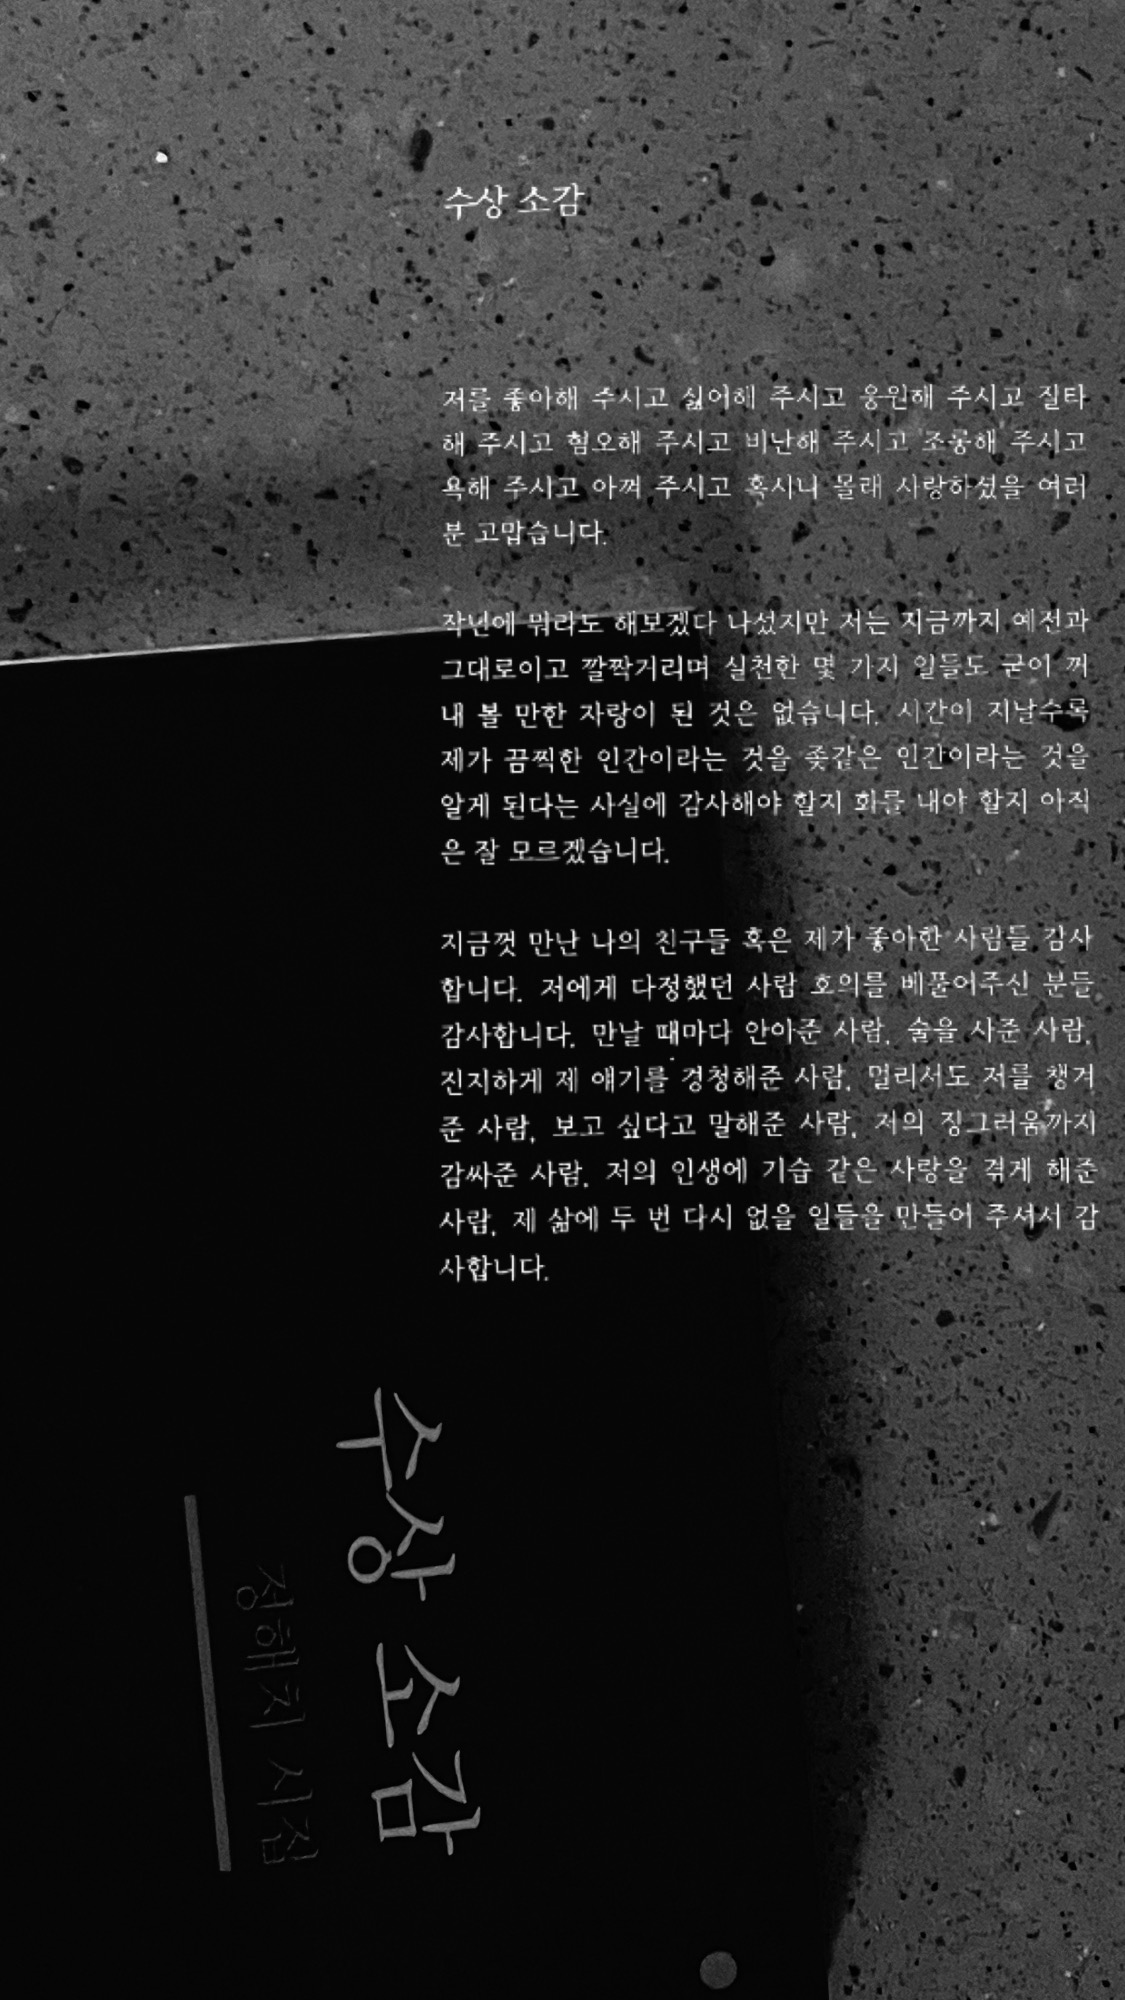 수상 소감
저를 좋아해 주시고 싫어해 주시고 응원해 주시고 질타
해 주시고 혐오해 주시고 비난해 주시고 조롱해 주시고
욕해 주시고 아껴 주시고 혹시나 몰래 사랑하셨을 여러
분 고맙습니다.
작년에 뭐라도 해보겠다 나섰지만 저는 지금까지 예전과
그대로이고 깔짝거리며 실천한 몇 가지 일들도 굳이 꺼
내 볼 만한 자랑이 된 것은 없습니다. 시간이 지날수록
제가 끔찍한 인간이라는 것을 좆같은 인간이라는 것을
알게 된다는 사실에 감사해야 할지 화를 내야 할지 아직
은 잘 모르겠습니다.
지금껏 만난 나의 친구들 혹은 제가 좋아한 사람들 감사
합니다. 저에게 다정했던 사람 호의를 베풀어주신 분들
감사합니다. 만날 때마다 안아준 사람, 술을 사준 사람,
진지하게 제 얘기를 경청해준 사람, 멀리서도 저를 챙겨
준 사람, 보고 싶다고 말해준 사람, 저의 징그러움까지
감싸준 사람, 저의 인생에 기습 같은 사랑을 겪게 해준
사람, 제 삶에 두 번 다시 없을 일들을 만들어 주셔서 감
사합니다.
수상 소감
정해치 시집